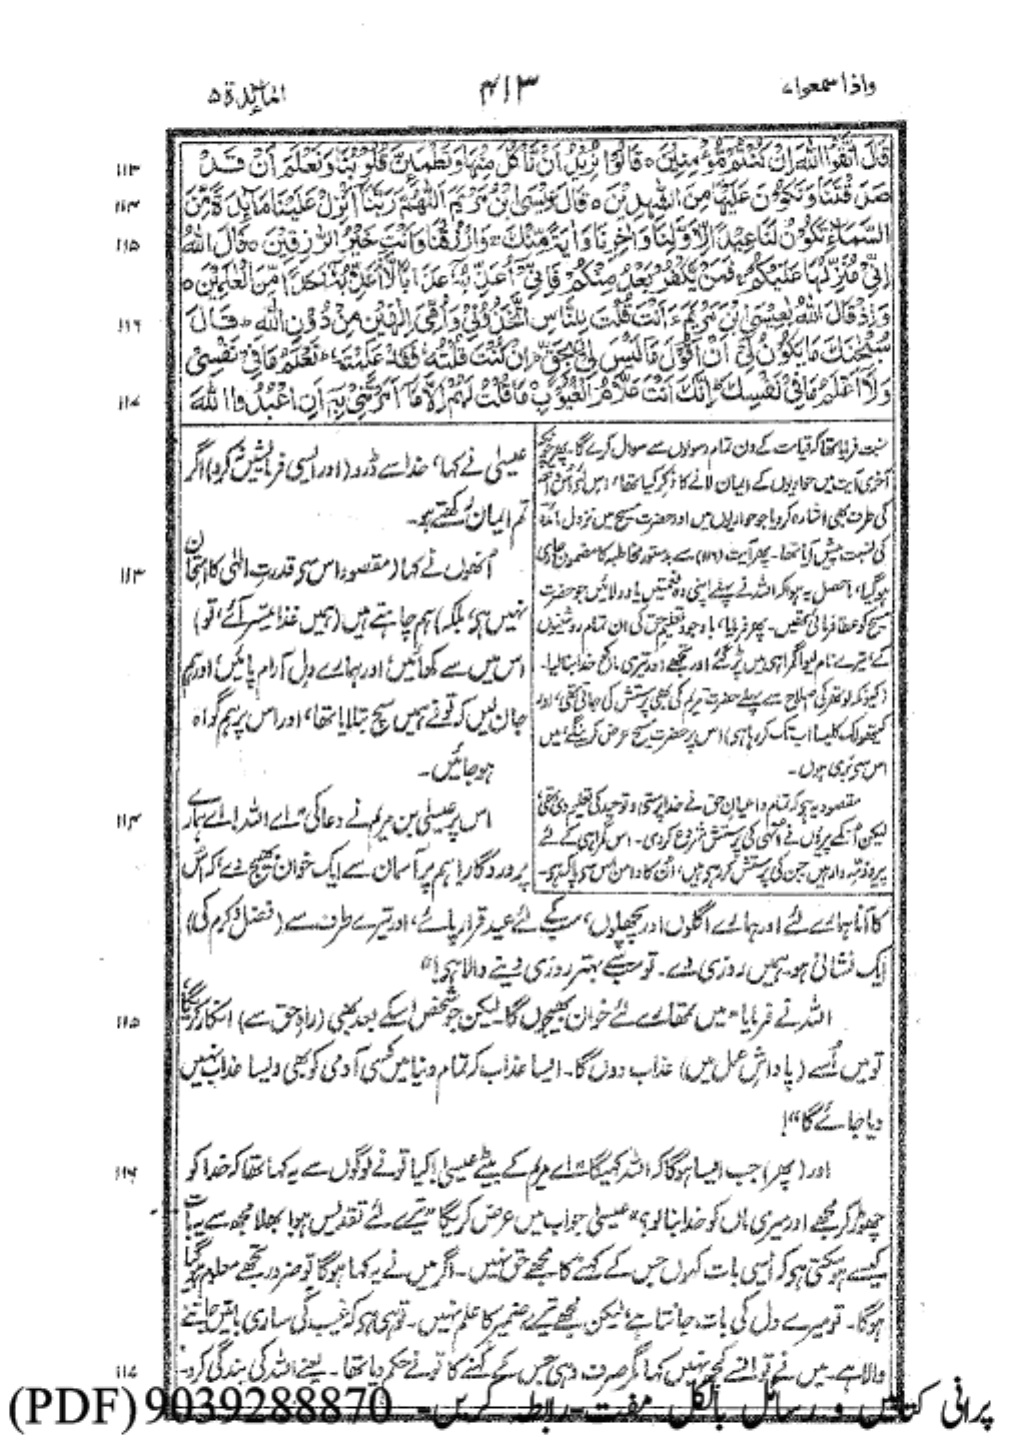 واذا سمعوا ۷
۴۱۳
المائدة ۵
قَالَ اتَّقُوا اللّٰهَ اِنْ كُنْتُمْ مُّؤْمِنِيْنَ ۝ قَالُوْا نُرِيْدُ اَنْ نَّاْكُلَ مِنْهَا وَتَطْمَئِنَّ قُلُوْبُنَا وَنَعْلَمَ اَنْ قَدْ
۱۱۳
صَدَقْتَنَا وَنَكُوْنَ عَلَيْهَا مِنَ الشّٰهِدِيْنَ ۝ قَالَ عِيْسَى ابْنُ مَرْيَمَ اللّٰهُمَّ رَبَّنَا اَنْزِلْ عَلَيْنَا مَآئِدَةً مِّنَ
۱۱۴
السَّمَآءِ تَكُوْنُ لَنَا عِيْدًا لِّاَوَّلِنَا وَاٰخِرِنَا وَاٰيَةً مِّنْكَ ۚ وَارْزُقْنَا وَاَنْتَ خَيْرُ الرّٰزِقِيْنَ ۝ قَالَ اللّٰهُ
۱۱۵
اِنِّيْ مُنَزِّلُهَا عَلَيْكُمْ ۚ فَمَنْ يَّكْفُرْ بَعْدُ مِنْكُمْ فَاِنِّيْ اُعَذِّبُهٗ عَذَابًا لَّا اُعَذِّبُهٗ اَحَدًا مِّنَ الْعٰلَمِيْنَ ۝
وَاِذْ قَالَ اللّٰهُ يٰعِيْسَى ابْنَ مَرْيَمَ ءَاَنْتَ قُلْتَ لِلنَّاسِ اتَّخِذُوْنِيْ وَاُمِّيَ اِلٰهَيْنِ مِنْ دُوْنِ اللّٰهِ ۚ قَالَ
۱۱۶
سُبْحٰنَكَ مَا يَكُوْنُ لِيْ اَنْ اَقُوْلَ مَا لَيْسَ لِيْ بِحَقٍّ ۚ اِنْ كُنْتُ قُلْتُهٗ فَقَدْ عَلِمْتَهٗ ۚ تَعْلَمُ مَا فِيْ نَفْسِيْ
وَلَا اَعْلَمُ مَا فِيْ نَفْسِكَ ۚ اِنَّكَ اَنْتَ عَلَّامُ الْغُيُوْبِ مَا قُلْتُ لَهُمْ اِلَّا مَا اَمَرْتَنِيْ بِهٖ اَنِ اعْبُدُوا اللّٰهَ
۱۱۷
نسبت فرمایا تھا کہ قیامت کے دن تمام رسولوں سے سوال کرے گا۔ پھر چونکہ
آخری آیت میں حواریوں کے ایمان لانے کا ذکر کیا تھا، اس لئے اُس واقعہ
کی طرف بھی اشارہ کردیا جو حواریوں میں اور حضرت مسیح میں نزول مائدہ
کی نسبت پیش آیا تھا۔ پھر آیت (۱۱۶) سے بدستور مخاطبہ کا مضمون جاری
ہوگیا، حاصل یہ ہوا کہ اللہ نے پہلے اپنی وہ نعمتیں یاد دلائیں جو حضرت
مسیح کو عطا فرمائی تھیں۔ پھر فرمایا، باوجود تعلیم حق کی ان تمام روشنیوں
کے تیرے نام لیوا گمراہی میں پڑ گئے اور تجھے اور تیری ماں کو خدا بنالیا۔
(کیونکہ لوتھر کی اصلاح سے پہلے حضرت مریم کی بھی پرستش کی جاتی تھی، اور
کیتھولک کلیسا اب تک کر رہا ہی) اس پر حضرت مسیح عرض کرینگے میں
اس سے بری ہوں۔
مقصود یہ ہی کہ تمام داعیانِ حق نے خدا پرستی و توحید کی تعلیم دی تھی
لیکن اُنکے پیرؤں نے اُنہی کی پرستش شروع کردی۔ اس گمراہی کے لئے
پیرو ذمہ دار ہیں جن کی پرستش کر رہی ہیں، اُن کا دامن اس سے پاک ہی۔
عیسیٰ نے کہا، خدا سے ڈرو (اور ایسی فرمایشیں نہ کرو) اگر
تم ایمان رکھتے ہو۔
اُنھوں نے کہا (مقصود اس سے قدرتِ الٰہی کا امتحان
۱۱۳
نہیں ہی، بلکہ) ہم چاہتے ہیں (ہمیں غذا میسر آئے، تو)
اس میں سے کھائیں، اور ہمارے دل آرام پائیں، اور ہم
جان لیں کہ تونے ہمیں سچ بتلایا تھا، اور اس پر ہم گواہ
ہوجائیں۔
اس پر عیسیٰ بن مریم نے دعا کی "اے اللہ! اے ہمارے
۱۱۴
پروردگار! ہم پر آسمان سے ایک خوان بھیج دے کہ اُس
کا آنا ہمارے لئے اور ہمارے اگلوں اور پچھلوں، سب کے لئے عید قرار پائے، اور تیرے طرف سے (فضل و کرم کی)
ایک نشانی ہو۔ ہمیں روزی دے۔ تو سب سے بہتر روزی دینے والا ہی!"
اللہ نے فرمایا "میں تمھارے لئے خوان بھیجوں گا۔ لیکن جو شخص اسکے بعد بھی (راہِ حق سے) انکار کریگا
۱۱۵
تو میں اُسے (پاداشِ عمل میں) عذاب دوں گا۔ ایسا عذاب کہ تمام دنیا میں کسی آدمی کو بھی ویسا عذاب نہیں
دیا جائے گا"!
اور (پھر) جب ایسا ہوگا کہ اللہ کہیگا "اے مریم کے بیٹے عیسیٰ! کیا تونے لوگوں سے یہ کہا تھا کہ خدا کو
۱۱۶
چھوڑ کر مجھے اور میری ماں کو خدا بنالو؟" عیسیٰ جواب میں عرض کریگا "تیرے لئے تقدیس ہو! بھلا مجھ سے یہ بات
کیسے ہوسکتی ہی کہ ایسی بات کہوں جس کے کہنے کا مجھے حق نہیں۔ اگر میں نے یہ کہا ہوگا تو ضرور تجھے معلوم ہوگیا
ہوگا۔ تو میرے دل کی بات جانتا ہے، لیکن مجھے تیرے ضمیر کا علم نہیں۔ تو ہی ہی کہ غیب کی ساری باتیں جاننے
والا ہے۔ میں نے تو انسے کچھ نہیں کہا مگر صرف وہی جس کے کہنے کا تونے حکم دیا تھا۔ یعنے اللہ کی بندگی کرو۔
۱۱۷
پرانی کتابیں و رسائل بالکل مفت۔ رابطہ کریں۔ 9039288870 (PDF)